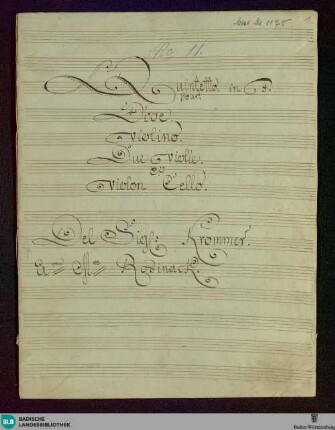 Mus. Hs. 1175
1
No 11.
Quintetto in C.
pour
Oboe.
Violino.
Due Viole.
et
Violon Cello.
Del Sigl: Krommer.
Rosinack.
BLB BADISCHE
LANDESBIBLIOTHEK
Baden-Württemberg